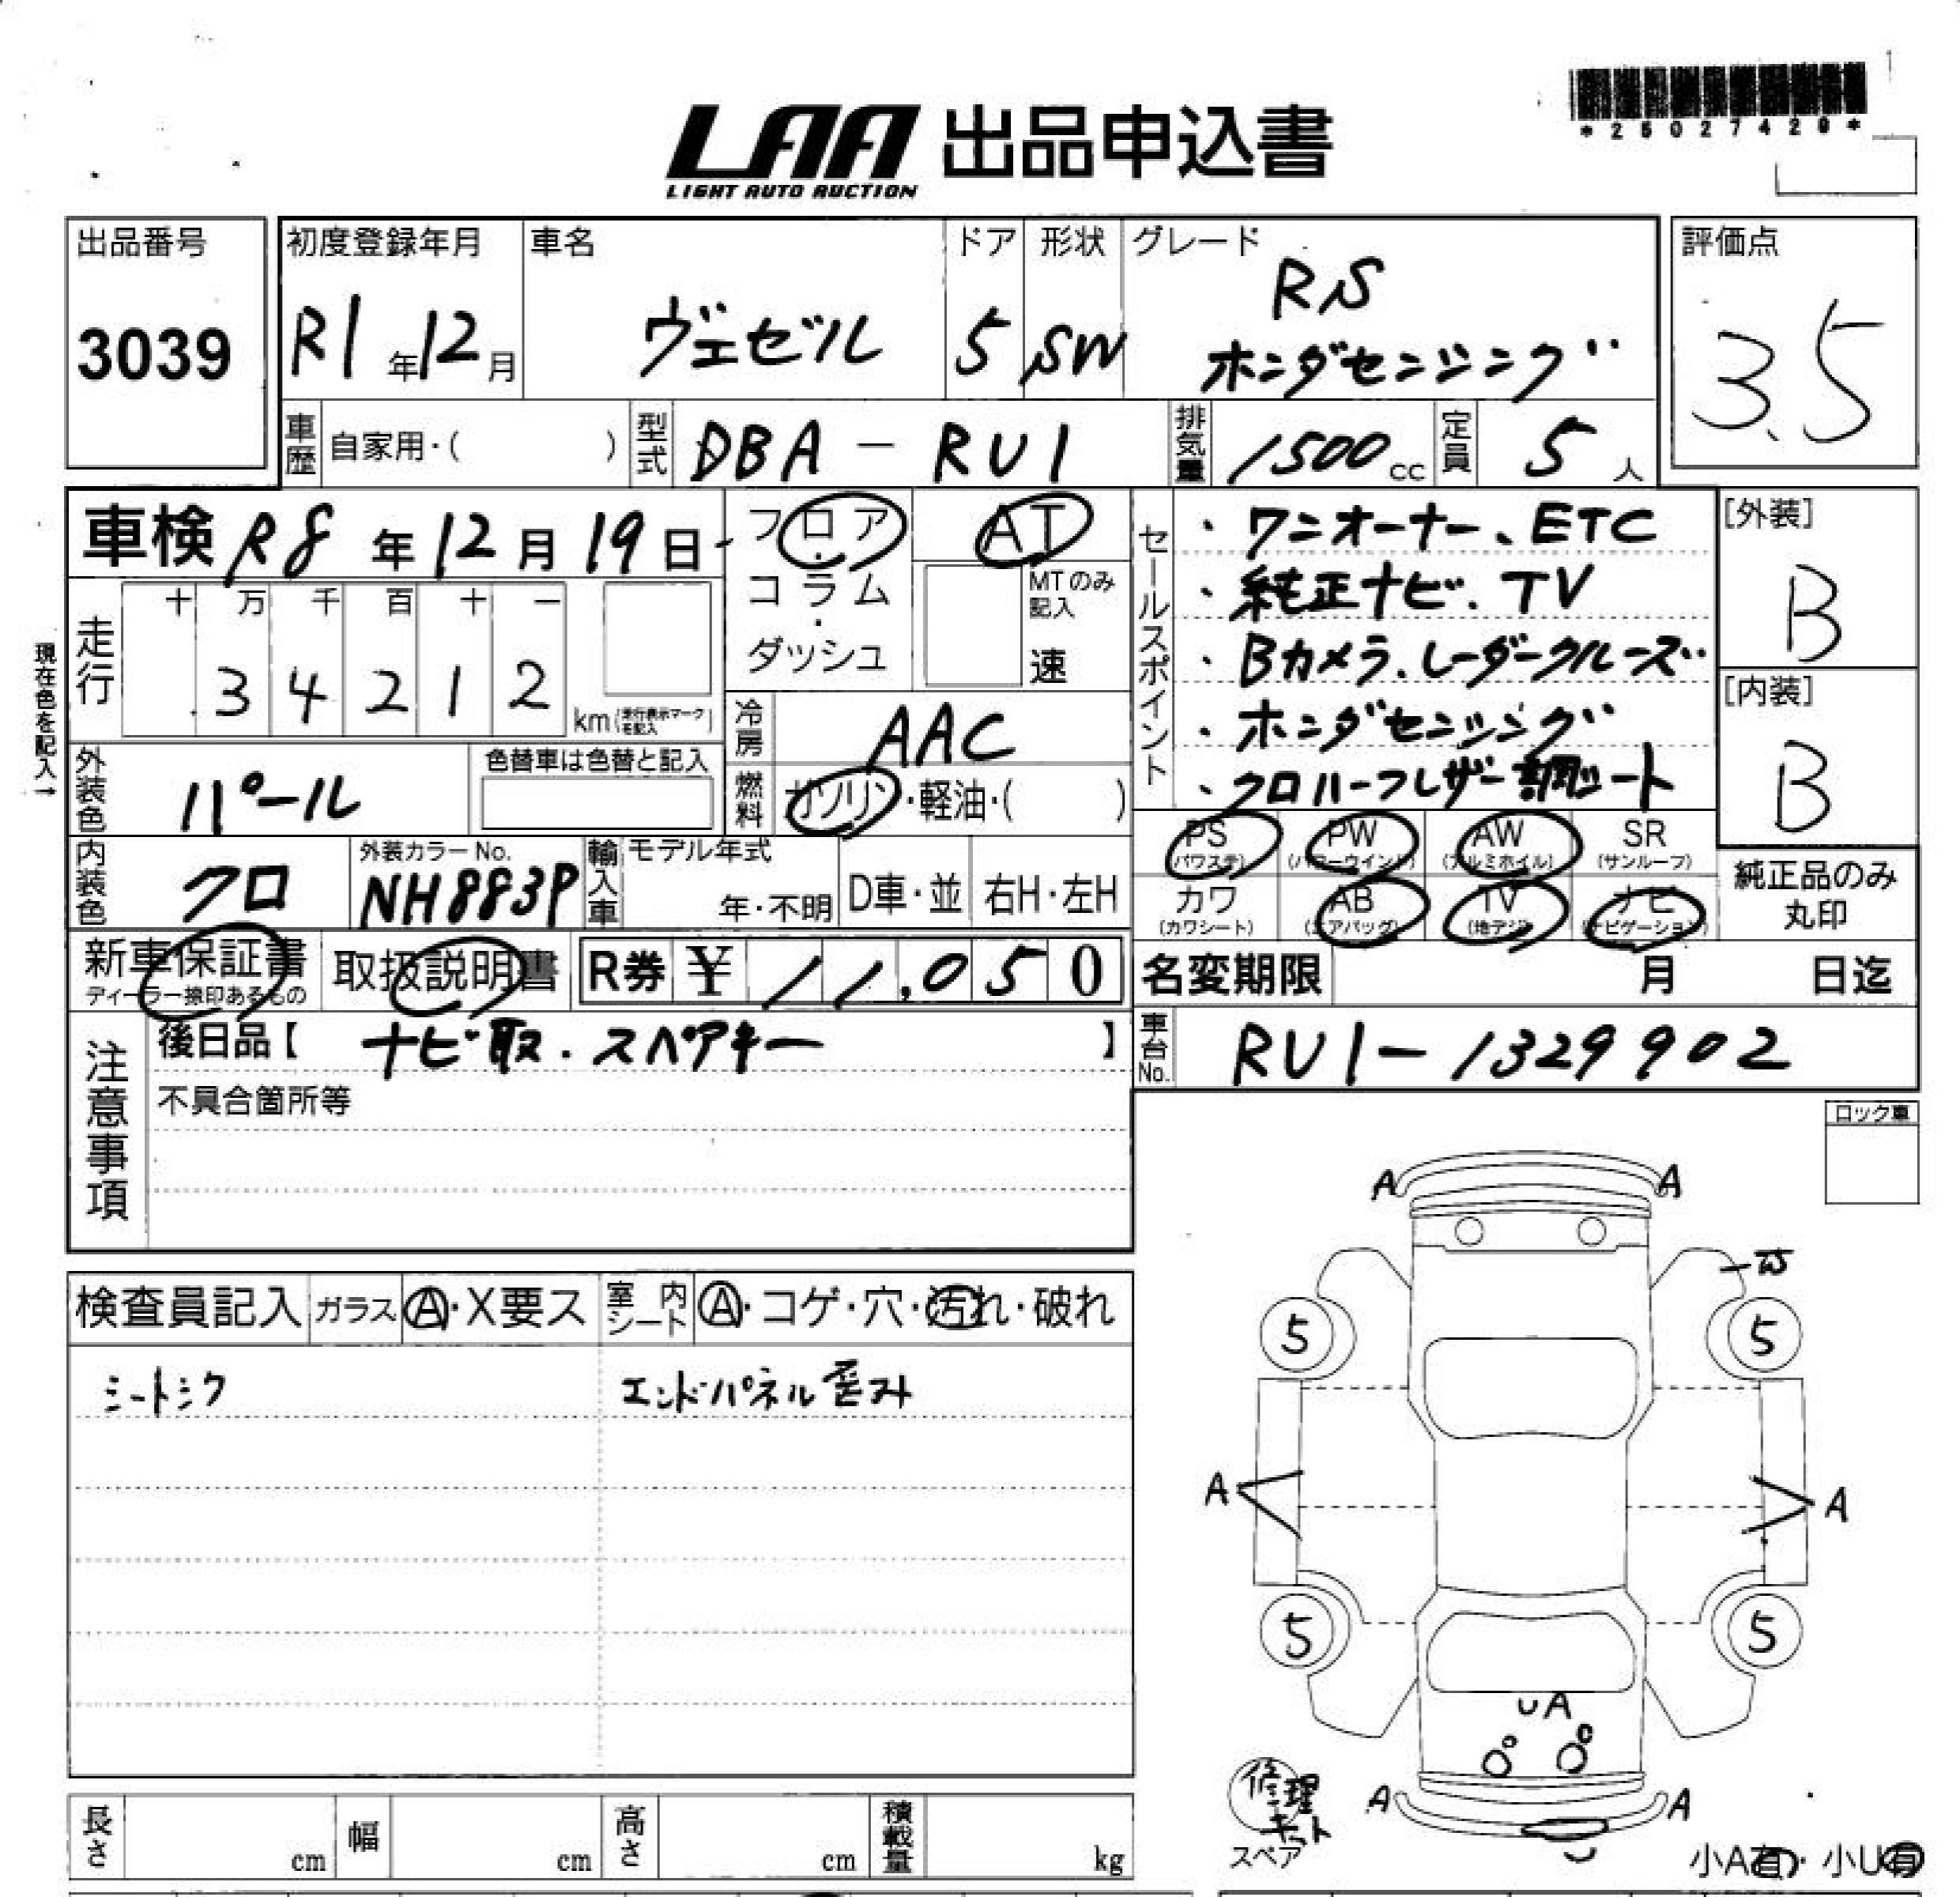 LAA 出品申込書
LIGHT AUTO AUCTION
*25027420*
出品番号
3039
初度登録年月
R1年12月
車名
ヴェゼル
ドア
5
形状
SW
グレード
RS
ホンダセンシング
評価点
3.5
車歴 自家用・( )
型式 DBA-RU1
排気量 1500cc
定員 5人
車検 R8年12月19日
フロア・コラム・ダッシュ
AT
MTのみ記入
速
走行
十 万 千 百 十 一
34212
km(走行表示マークを記入)
現在色を記入→
冷房 AAC
燃料 ガソリン・軽油・( )
外装色 パール
色替車は色替と記入
内装色 クロ
外装カラーNo.
NH883P
輸入車 モデル年式
年・不明
D車・並
右H・左H
セールスポイント
・ワンオーナー、ETC
・純正ナビ、TV
・Bカメラ、レーダークルーズ
・ホンダセンシング
・クロハーフレザー調シート
[外装]
B
[内装]
B
PS
(パワステ)
PW
(パワーウインド)
AW
(アルミホイル)
SR
(サンルーフ)
カワ
(カワシート)
AB
(エアバッグ)
TV
(地デジ)
ナビ
(ナビゲーション)
純正品のみ
丸印
新車保証書
ディーラー捺印あるもの
取扱説明書
R券 ¥ 11,050
名変期限 月 日迄
注意事項
後日品【 ナビ取.スペアキー 】
不具合箇所等
車台No. RU1-1329902
ロック車
検査員記入
ガラス
A・X要ス
室内シート
A・コゲ・穴・汚れ・破れ
シートシワ
エンドパネル
A A
5 5
A A
5 5
UA
A A
修理キット
スペア
小A有・小U有
長さ cm
幅 cm
高さ cm
積載量 kg